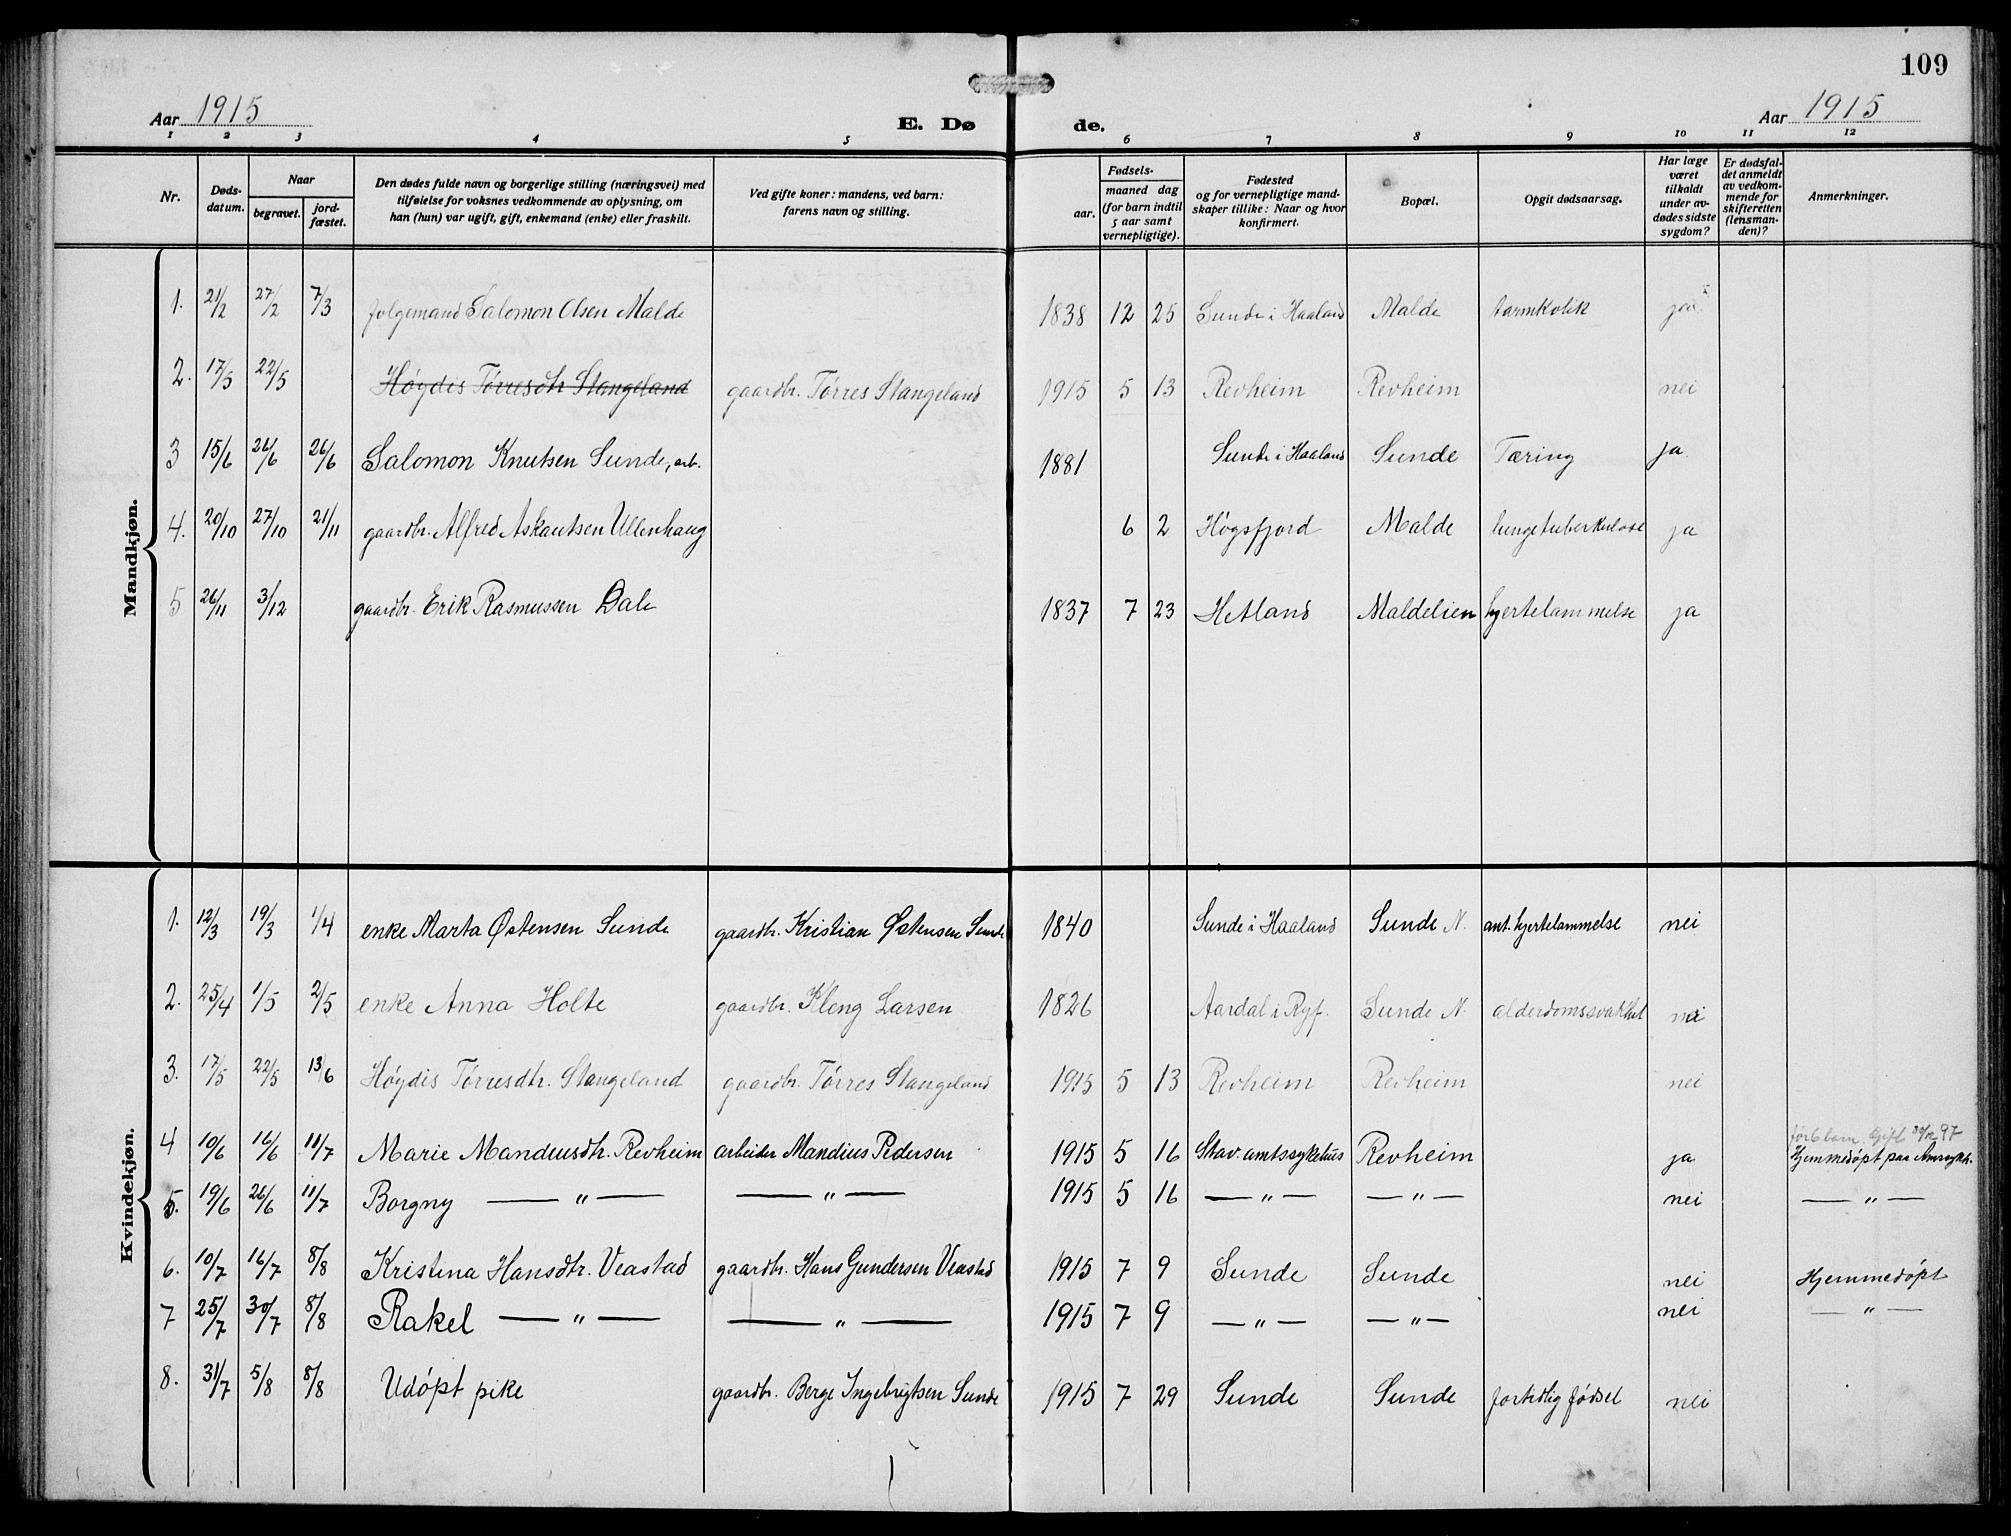 109
Aar 1915
E. Dø
de.
Aar 1915
1 2 3 4 5 6 7 8 9 10 11 12
Nr.
Døds-
datum.
Naar
begravet.
jord-
fæstet.
Den dødes fulde navn og borgerlige stilling (næringsvei) med
tilføielse for voksnes vedkommende av oplysning, om
han (hun) var ugift, gift, enkemand (enke) eller fraskilt.
Ved gifte koner: mandens, ved barn:
farens navn og stilling.
Fødsels-
aar.
maaned dag
(for barn indtil
5 aar samt
vernepligtige).
Fødested
og for vernepligtige mand-
skaper tillike: Naar og hvor
konfirmert.
Bopæl.
Opgit dødsaarsag.
Har læge
været
tilkaldt
under av-
dødes sidste
sygdom?
Er dødsfal-
det anmeldt
av vedkom-
mende for
skifteretten
(lensman-
den)?
Anmerkninger.
Mandkjøn.
1. 21/2 27/2 7/3 folgemand Salomon Olsen Malde 1838 12 25 Sunde i Haaland Malde tarmkolik ja
2. 17/5 22/5 Høydis Tørresdtr Stangeland gaardbr. Tørres Stangeland 1915 5 13 Revheim Revheim nei
3 15/6 26/6 26/6 Salomon Knutsen Sunde, arb. 1881 Sunde i Haaland Sunde Tæring ja.
4. 20/10 27/10 21/11 gaardbr. Alfred Askautsen Ullenhaug 6 2 Høgsfjord Malde lungetuberkulose ja
5 26/11 3/12 gaardbr. Erik Rasmussen Dale 1837 7 23 Hetland Maldelien hjertelammelse ja
Kvindekjøn.
1. 12/3 19/3 1/4 enke Marta Østensen Sunde gaardbr. Kristian Østensen Sunde 1840 Sunde i Haaland Sunde N. ant. hjertelammelse nei
2. 25/4 1/5 2/5 enke Anna Holte gaardbr. Kleng Larsen 1826 Aardal i Ryf. Sunde N. alderdomssvakhet nei
3. 17/5 22/5 13/6 Høydis Tørresdtr. Stangeland gaardbr. Tørres Stangeland 1915 5 13 Revheim Revheim nei
4 10/6 16/6 11/7 Marie Mandiusdtr. Revheim arbeider Mandius Pedersen 1915 5 16 Stav. amtssykehus Revheim ja Hjemmedøpt paa
5. 19/6 26/6 11/7 Borgny — " — — " — 1915 5 16 — " — — " — nei — " —
6. 10/7 16/7 8/8 Kristina Hansdtr. Veastad gaardbr. Hans Gundersen Veastad 1915 7 9 Sunde Sunde nei Hjemmedøpt
7 25/7 30/7 8/8 Rakel — " — — " — 1915 7 9 — " — — " — nei — " —
8. 31/7 5/8 8/8 Udøpt pike gaardbr. Berge Ingebrigtsen Sunde 1915 7 29 Sunde Sunde fortidlig fødsel nei